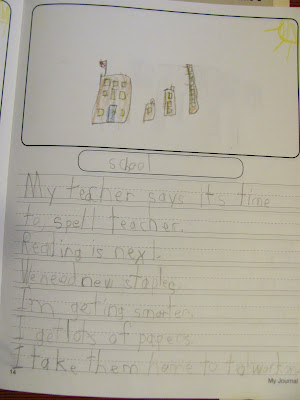 school
My teacher says it's time
to spell teacher.
Reading is next.
We need new staples.
I'm geting smarter.
I get lots of papers.
I take them home to
14
My Journal